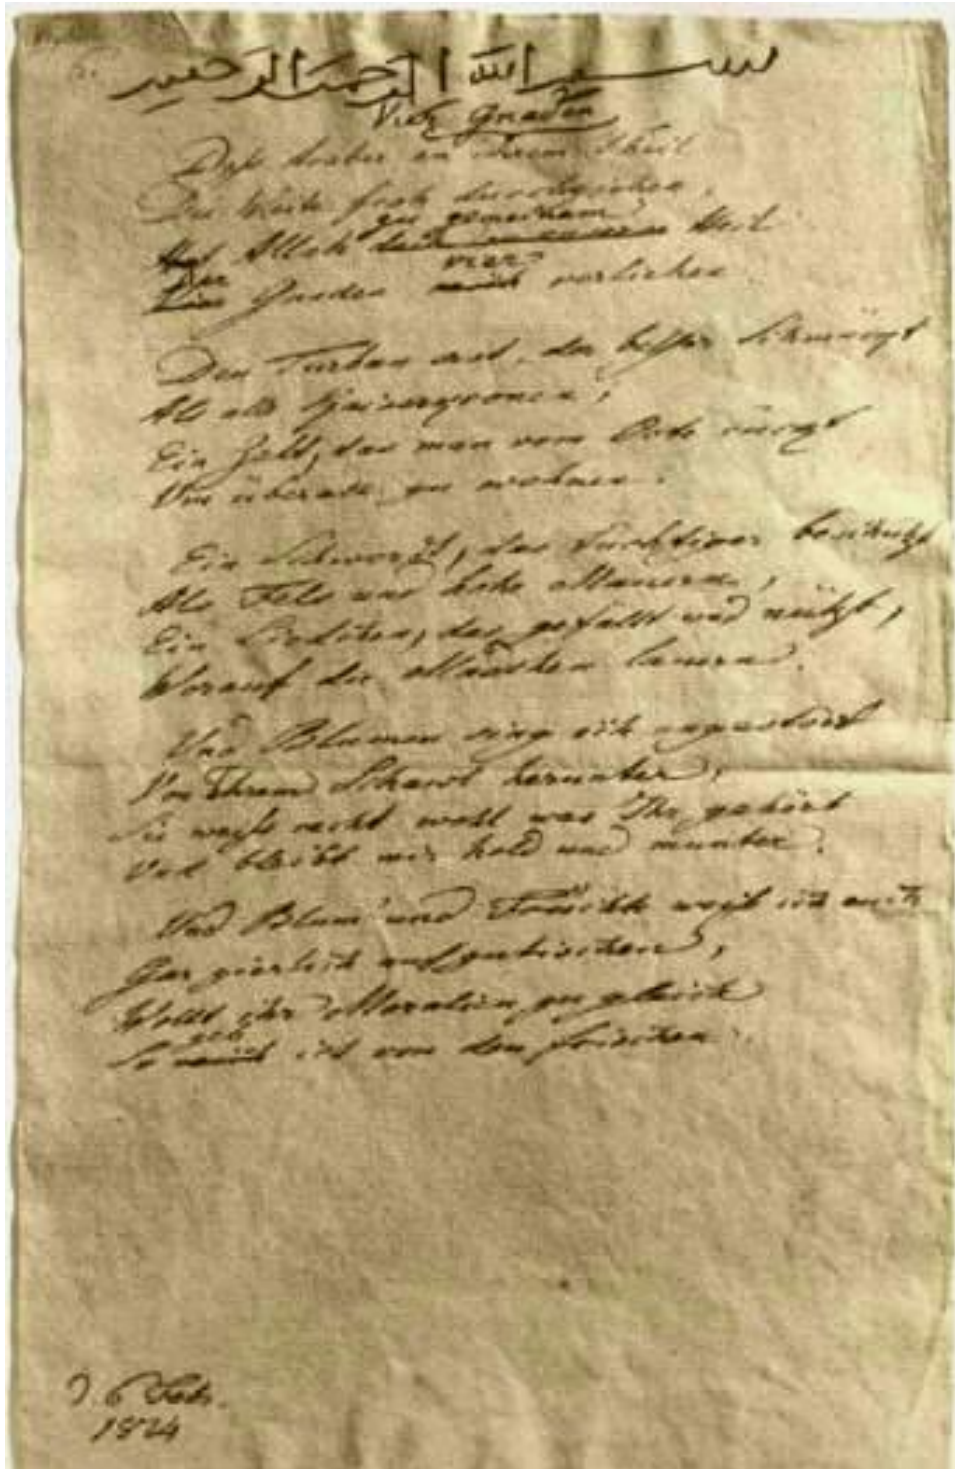 بسم الله الرحمن الرحيم
Vier Gnaden
Daß Araber an ihrem Theil
Die Weite froh durchziehen,
zu gemeinem
Hat Allah Heil
Der vier
Gnaden verliehen.
Den Turban erst, der besser schmückt
Als alle Kaiserkronen;
Ein Zelt, das man vom Orte rückt
Um überall zu wohnen.
Ein Schwerdt, das tüchtiger beschützt
Als Fels und hohe Mauern,
Ein Liedchen, das gefällt und nützt,
Worauf die Mädchen lauern.
Und Blumen sing ich ungestört
Von Ihrem Shawl herunter,
Sie weiß recht wohl was Ihr gehört
Und bleibt mir hold und munter.
Und Blum' und Früchte weiß ich euch
Gar zierlich aufzutischen,
Wollt ihr Moralien zugleich
geb
So ich von den frischen.
d. 6 Febr.
1814